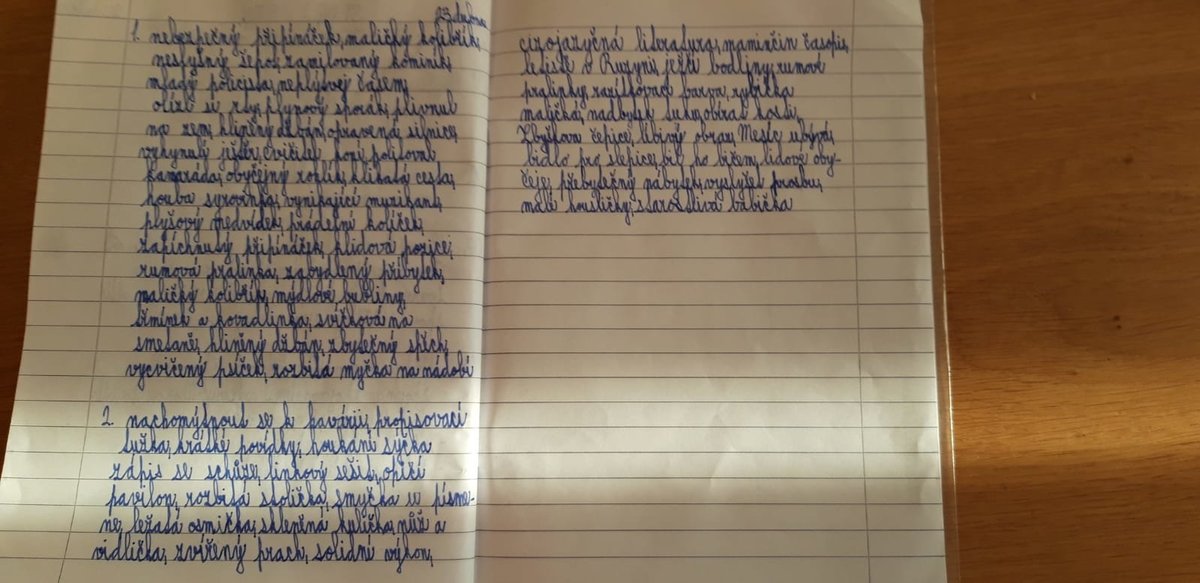 dubna
1. nebezpečný připínáček, maličký kolibřík,
neslyšný šepot, zamilovaný kominík,
mladý policista, neplýtvej časem,
olízl si rty, plynový sporák, plivnul
na zem, hliněný džbán, opravená silnice,
vyhynulý ještěr, cvičitel koní, politoval
kamaráda, obyčejný rohlík, klikatá cesta,
houba syrovinka, vynikající muzikant,
plyšový medvídek, prádelní kolíček,
zapíchnutý připínáček, klidová pozice,
rumová pralinka, zabydlený příbytek,
maličký kolibřík, mýdlové bubliny,
třmínek a kovadlinka, svíčková na
smetaně, hliněný džbán, zbytečný spěch,
vycvičený psíček, rozbitá myčka na nádobí
2. nachomýtnout se k havárii, propisovací
tužka, krátké povídky, houkání sýčka
zápis ze schůze, linkový sešit, opičí
pavilon, rozbitá stolička, smyčka u písme-
ne, ležatá osmička, skleněná kulička, nůž a
vidlička, zvířený prach, solidní výkon,
cizojazyčná literatura, maminčin časopis,
letiště v Ruzyni, ježčí bodliny, rumové
pralinky, zazišťovací barva, rybička
maličká, nadbytek sukův, obírat kosti,
Zbyškova čepice, líbivý obraz, Měsíc ubývá,
bidlo pro slepice, bít ho bičem, lidové oby-
čeje, přebytečný nábytek, vyslyšet prosbu,
malé housličky, starostlivá babička